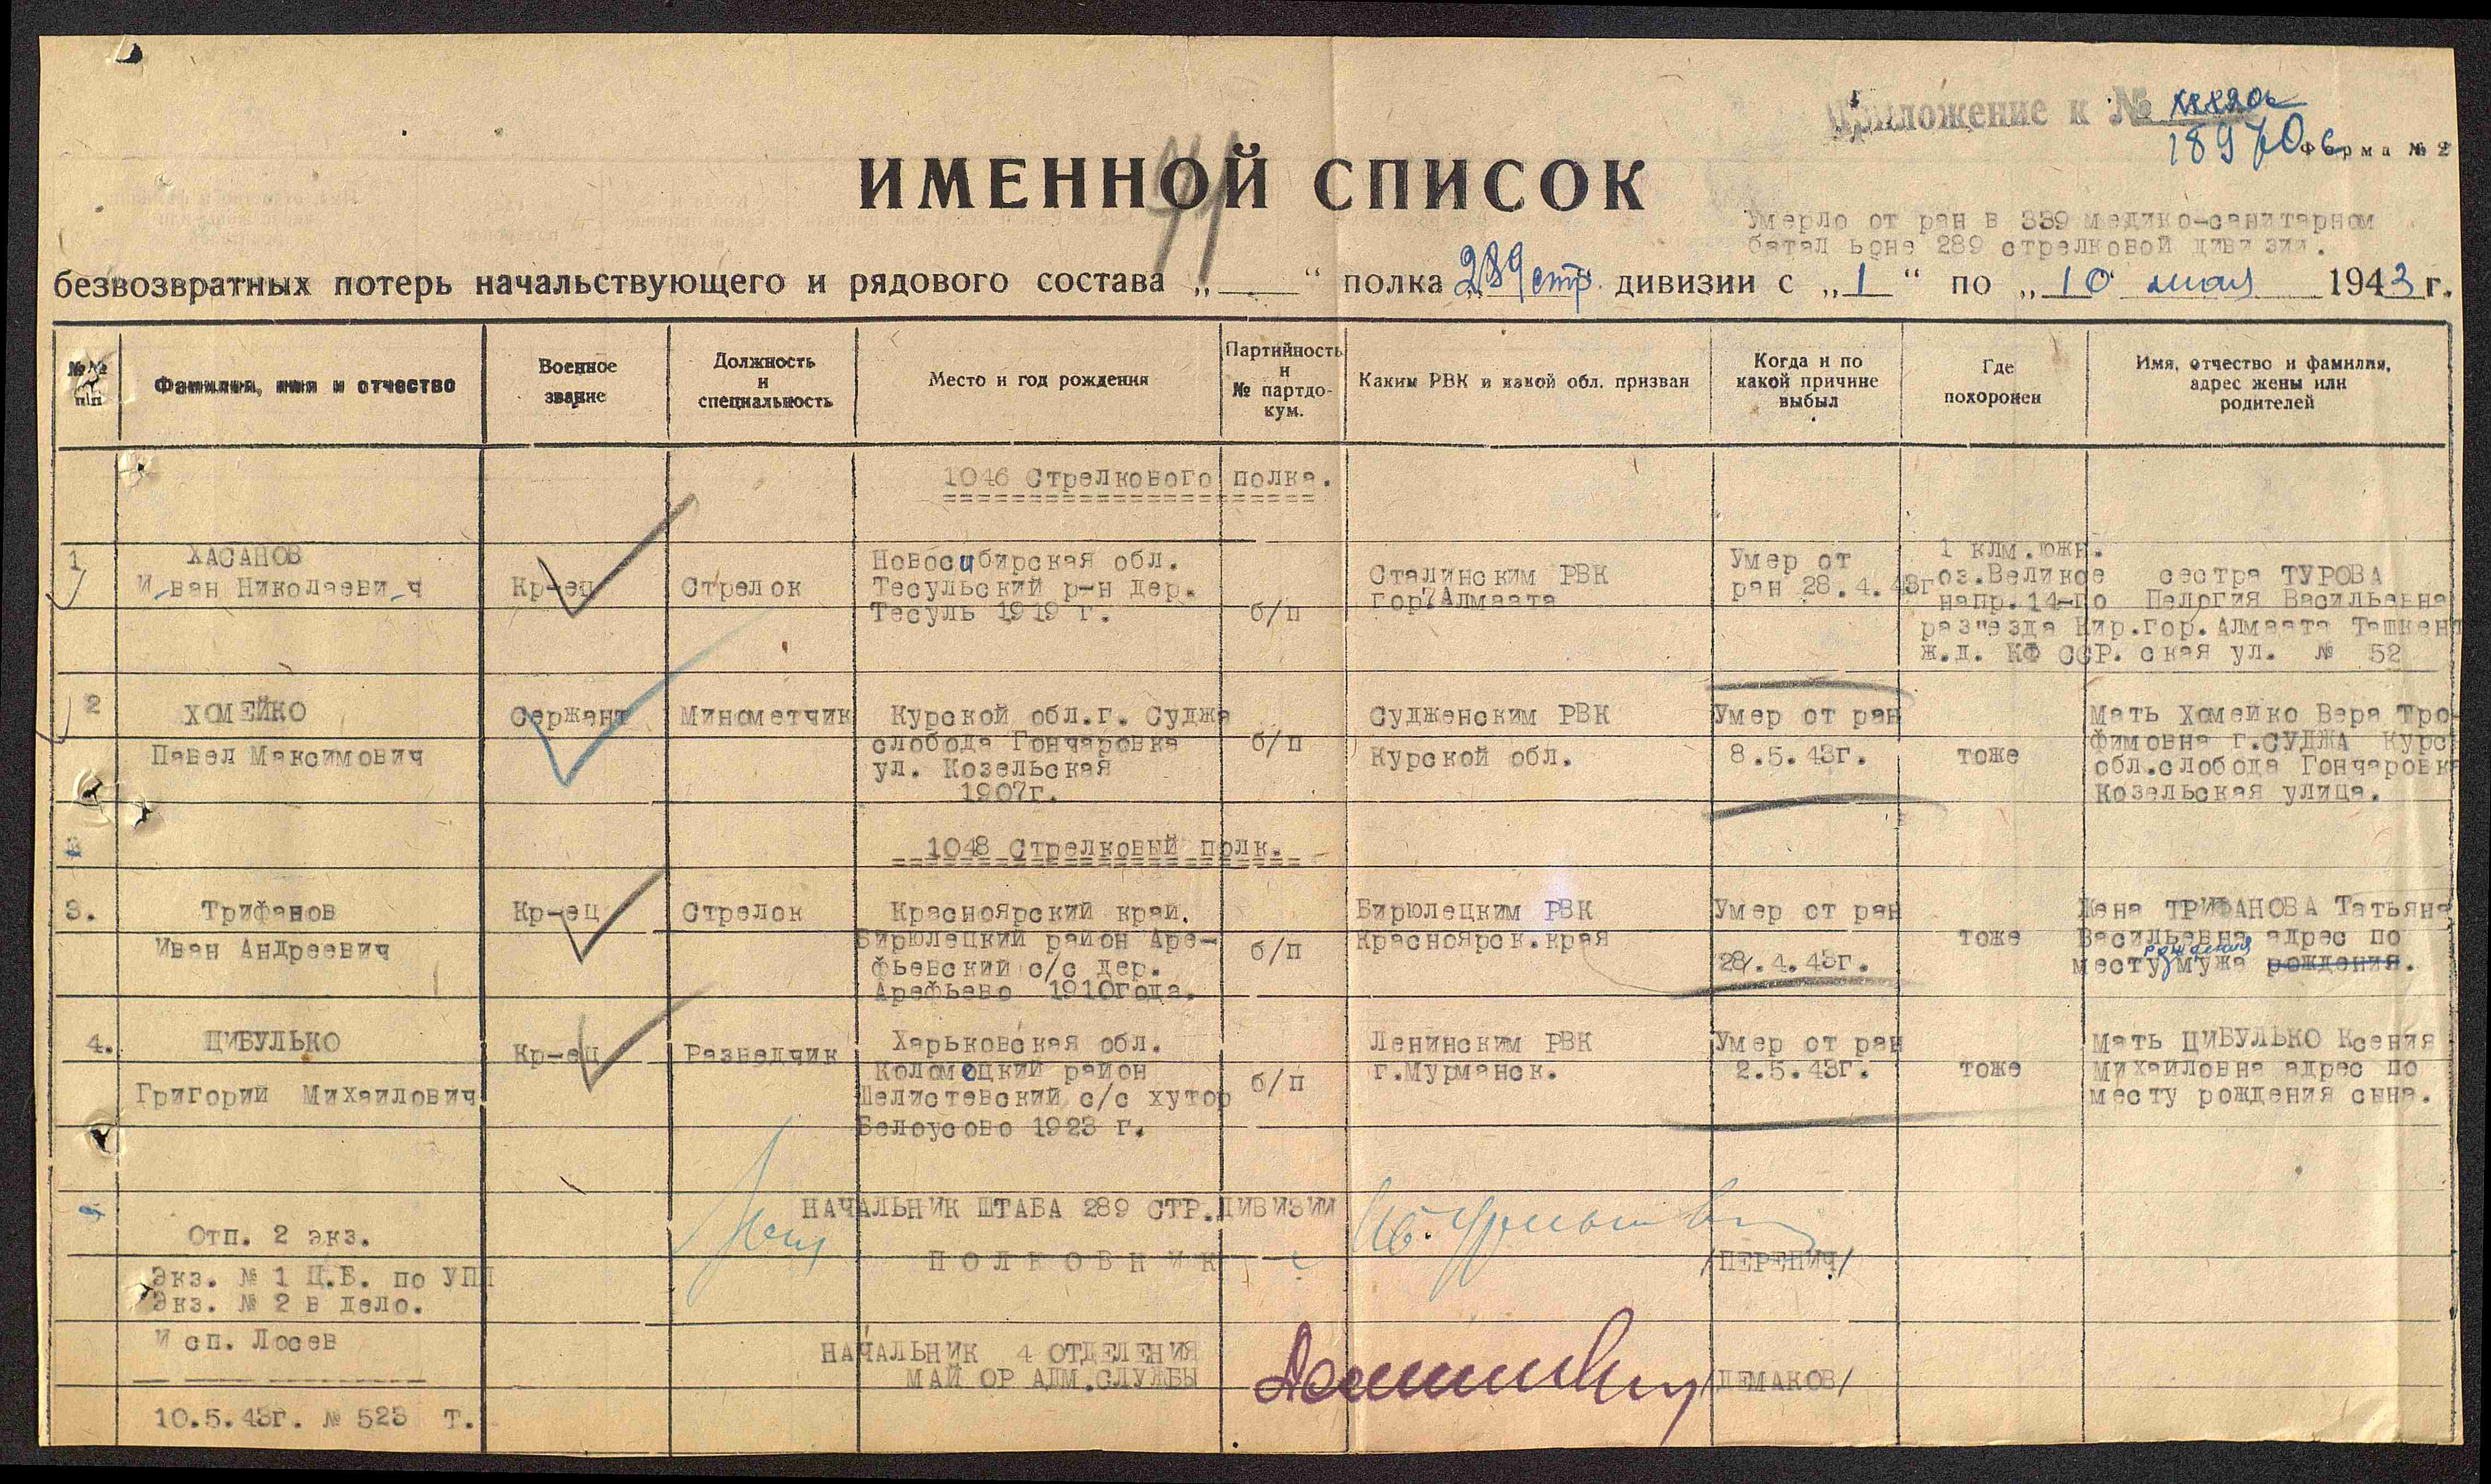 Приложение к №
18970с
Форма № 2
41
ИМЕННОЙ СПИСОК
Умерло от ран в 339 медико-санитарном
батальоне 289 стрелковой дивизии.
безвозвратных потерь начальствующего и рядового состава „ “ полка „289 стр. дивизии с „1“ по „10 мая 1943 г.
№№ п/п
Фамилия, имя и отчество
Военное
звание
Должность
и
специальность
Место и год рождения
Партийность
и
№ партдо-
кум.
Каким РВК и какой обл. призван
Когда и по
какой причине
выбыл
Где
похоронен
Имя, отчество и фамилия,
адрес жены или
родителей
1046 Стрелкового полка.
1
ХАСАНОВ
Иван Николаевич
Кр-ец
Стрелок
Новосибирская обл.
Тесульский р-н дер.
Тесуль 1919 г.
б/п
Сталинским РВК
гор. Алмаата
Умер от
ран 28.4.43г
1 клм.южн.
оз.Великое
напр.14-го
раз"езда Кир.
ж.д. КФ ССР.
сестра ТУРОВА
Пелогия Васильевна
гор. Алмаата Ташкент
ская ул. № 52
2
ХОМЕЙКО
Павел Максимович
Сержант
Минометчик
Курской обл.г. Суджа
слобода Гончаровка
ул. Козельская
1907г.
б/п
Судженским РВК
Курской обл.
Умер от ран
8.5.43г.
тоже
Мать Хомейко Вера Тро-
фимовна г.СУДЖА Курс
обл.слобода Гончаровка
Козельская улица.
1048 Стрелковый полк.
3.
Трифанов
Иван Андреевич
Кр-ец
Стрелок
Красноярский край.
Бирюлецкий район Аре-
фьевский с/с дер.
Арефьево 1910года.
б/п
Бирюлецким РВК
Красноярск.края
Умер от ран
28.4.43г.
тоже
Жена ТРИФАНОВА Татьяна
Васильевна адрес по
месту рождения мужа рождения.
4.
ЦИБУЛЬКО
Григорий Михаилович
Кр-ец
Разведчик
Харьковская обл.
Коломецкий район
Шелистевский с/с хутор
Белоусово 1923 г.
б/п
Ленинским РВК
г.Мурманск.
Умер от ран
2.5.43г.
тоже
Мать ЦИБУЛЬКО Ксения
Михаиловна адрес по
месту рождения сына.
НАЧАЛЬНИК ШТАБА 289 СТР.ДИВИЗИИ
ПОЛКОВНИК - /ПЕРЕПИЧ/
Отп. 2 экз.
Экз. № 1 Ц.Б. по УПП
Экз. № 2 в дело.
Исп. Лосев
НАЧАЛЬНИК 4 ОТДЕЛЕНИЯ
МАЙОР АДМ.СЛУЖБЫ /ДЕМАКОВ/
10.5.43г. № 523 т.